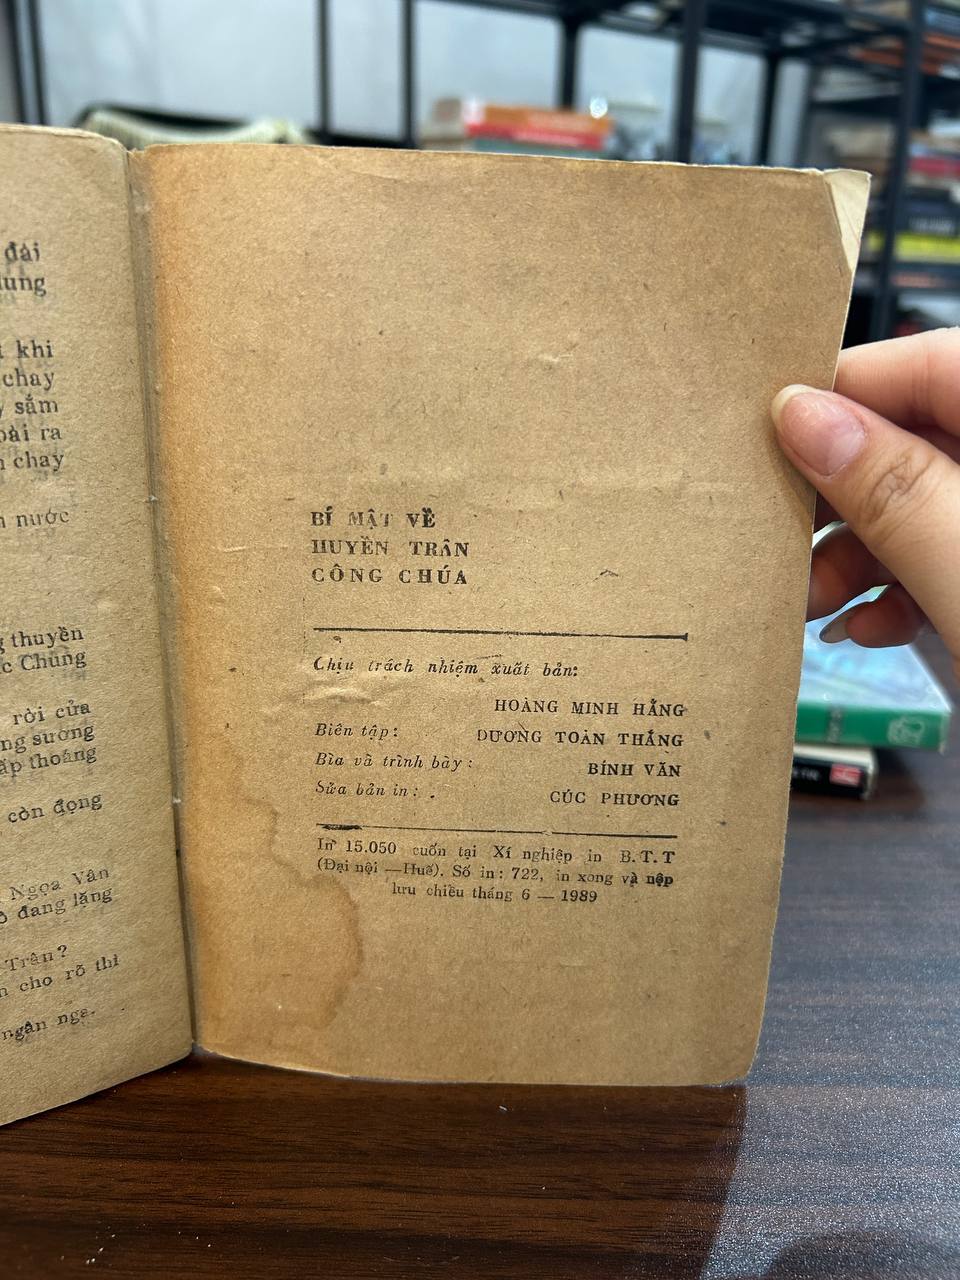 đài
khi
chay
sắm
ra
chay
nước
thuyền
Chúng
rời cửa
sương
thoáng
còn đọng
Ngọa Vân
đang lặng
Trân?
cho rõ thì
ngân nga.
BÍ MẬT VỀ
HUYỀN TRÂN
CÔNG CHÚA
Chịu trách nhiệm xuất bản:
HOÀNG MINH HẰNG
Biên tập: DƯƠNG TOÀN THẮNG
Bìa và trình bày: BÍNH VĂN
Sửa bản in: CÚC PHƯƠNG
In 15.050 cuốn tại Xí nghiệp in B.T.T
(Đại nội — Huế). Số in: 722, in xong và nộp
lưu chiều tháng 6 — 1989